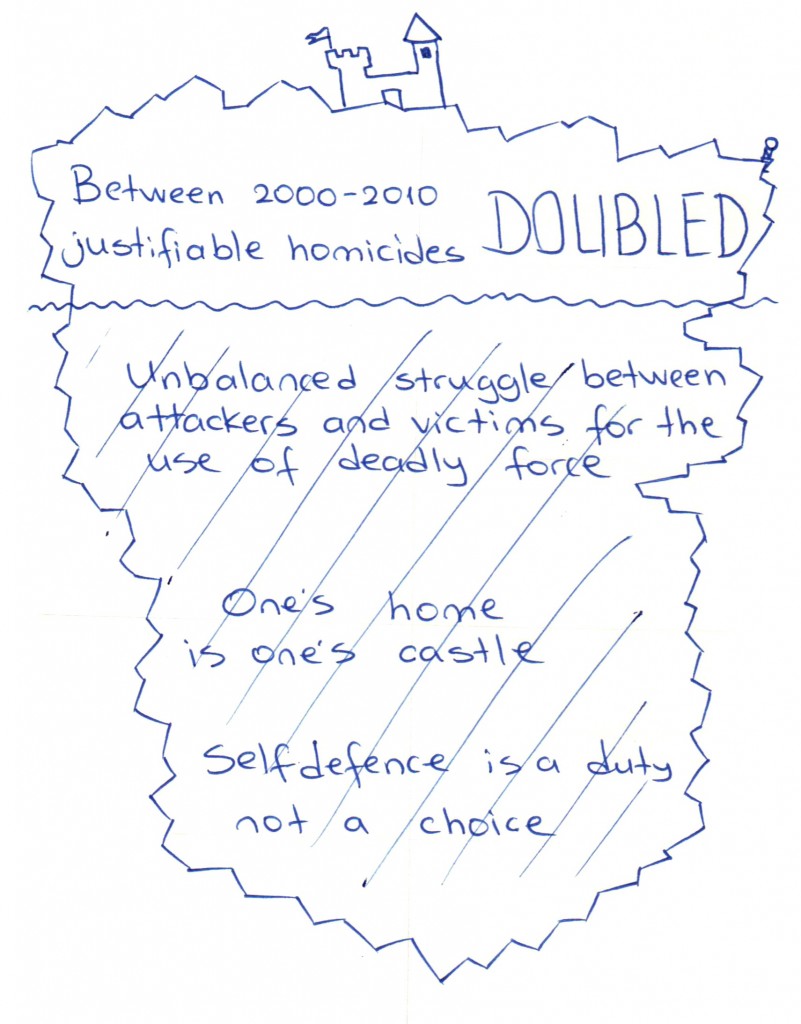 Between 2000-2010
justifiable homicides DOUBLED
Unbalanced struggle between
attackers and victims for the
use of deadly force
One's home
is one's castle
Selfdefence is a duty
not a choice